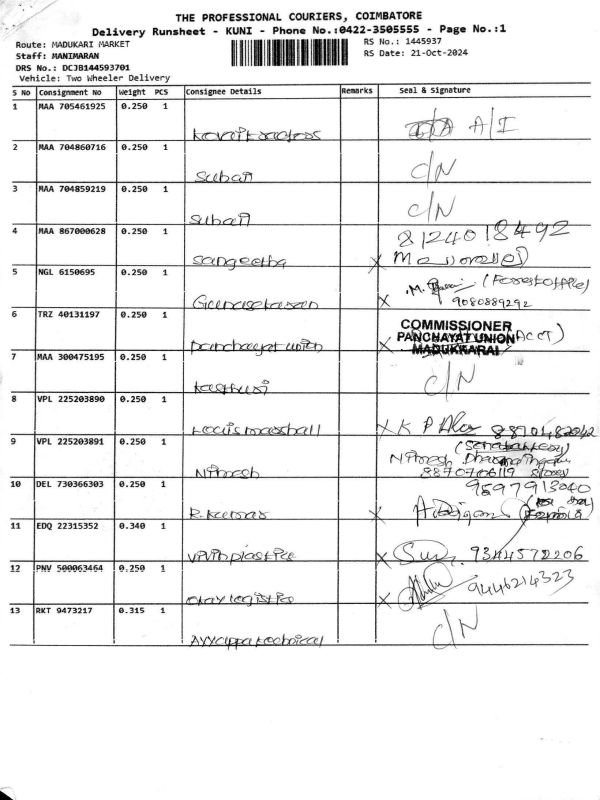 THE PROFESSIONAL COURIERS, COIMBATORE
Delivery Runsheet - KUNI - Phone No.:0422-3505555 - Page No.:1
Route: MADUKARI MARKET
RS No.: 1445937
Staff: MANIMARAN
RS Date: 21-Oct-2024
DRS No.: DCJB144593701
Vehicle: Two Wheeler Delivery
S No Consignment No Weight PCS Consignee Details Remarks Seal & Signature
1 MAA 705461925 0.250 1 A/I
2 MAA 704860716 0.250 1 C/N
Suban
3 MAA 704859219 0.250 1 C/N
Suban
4 MAA 867000628 0.250 1 8124018492
Sangeetha X
5 NGL 6150695 0.250 1 M. (Forest office)
Gunasekaran X 9080889292
6 TRZ 40131197 0.250 1 COMMISSIONER
PANCHAYAT UNION ACCT)
Panchayat union X MADUKKARAI
7 MAA 300475195 0.250 1 C/N
Kasthuri
8 VPL 225203890 0.250 1
Louis marshall X K P 8870482042
9 VPL 225203891 0.250 1
Nithesh
8870706119
10 DEL 730366303 0.250 1 9597913040
R.kumar X
11 EDQ 22315352 0.340 1
Vivin plastice X 9344572206
12 PNV 500063464 0.250 1
Okay logistice X 9446214323
13 RKT 9473217 0.315 1 C/N
Ayyappa technical